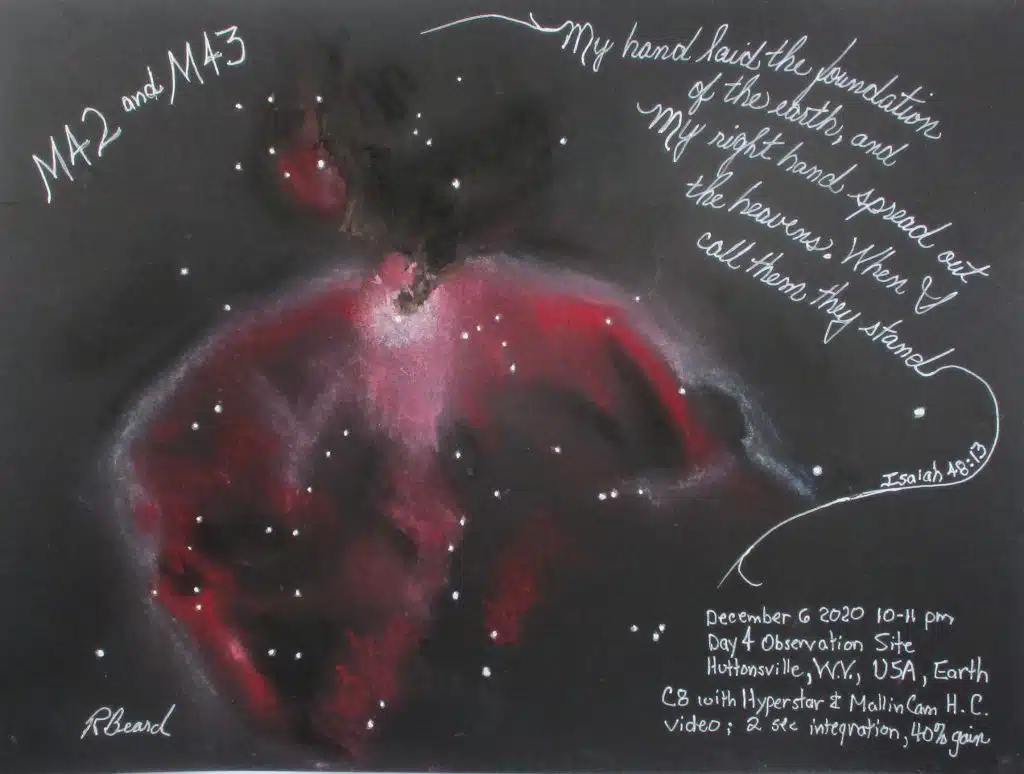 M42 and M43
My hand laid the foundation
of the earth, and
My right hand spread out
the heavens. When I
call them they stand
Isaiah 48:13
December 6 2020 10-11 pm
Day 4 Observation Site
Huttonsville, W.V., USA, Earth
C8 with Hyperstar & MallinCam H.C.
video; 2 sec integration, 40% gain
RBeard